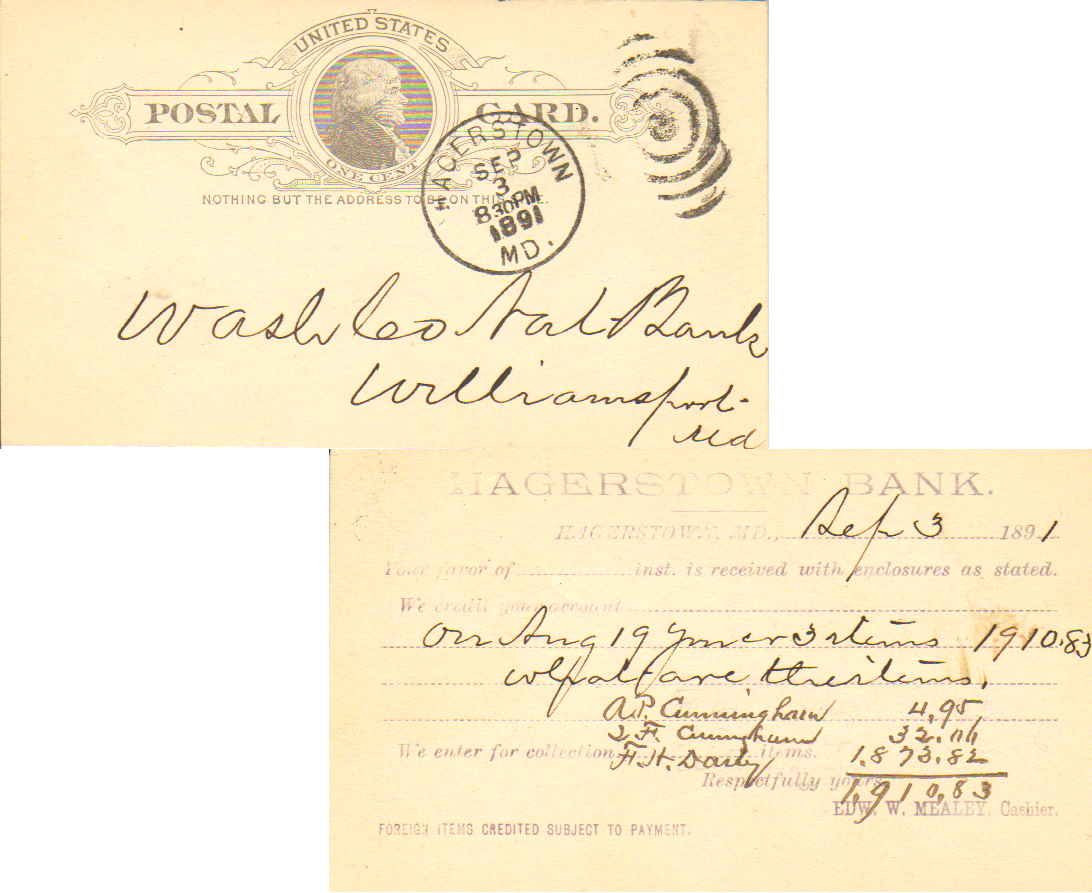 UNITED STATES
POSTAL CARD.
ONE CENT
NOTHING BUT THE ADDRESS TO BE ON THIS SIDE.
HAGERSTOWN
SEP
3
830PM
1891
MD.
Wash Co Nat Bank
Williamsport
Md
HAGERSTOWN BANK.
HAGERSTOWN, MD., Sep 3 1891
Your favor of inst. is received with enclosures as stated.
We credit your account
On Aug 19 you cr 3 items 1910.83
what are the items.
A.P. Cunningham 4,95
F. Cunningham 32.06
We enter for collection items.
F. H. Darby 1.873.82
Respectfully yours
1,910,83
EDW. W. MEALEY, Cashier.
FOREIGN ITEMS CREDITED SUBJECT TO PAYMENT.